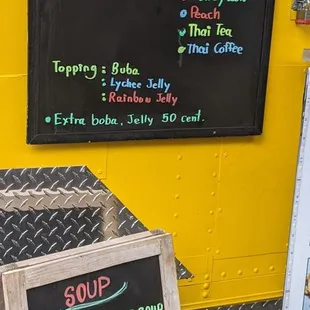 Peach
Thai Tea
Thai Coffee
Topping : Buba
: Lychee Jelly
: Rainbow Jelly
Extra boba, Jelly 50 cent.
SOUP
SOUP